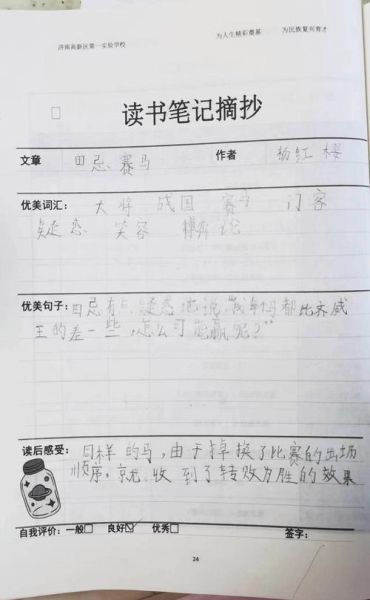 济南高新区第一实验学校
为人生精彩奠基 为民族复兴育才
读书笔记摘抄
文章 田忌赛马 作者 杨红樱
优美词汇：大将 战国 赛马 门客
疑惑 笑容
优美句子：田忌有点疑惑地说："我的马都比齐威
王的差一些，怎么可能赢呢？"
读后感受：同样的马，由于掉换了比赛的出场
顺序，竟尤收到了转败为胜的效果
自我评价：一般□ 良好☑ 优秀□ 签字：
24